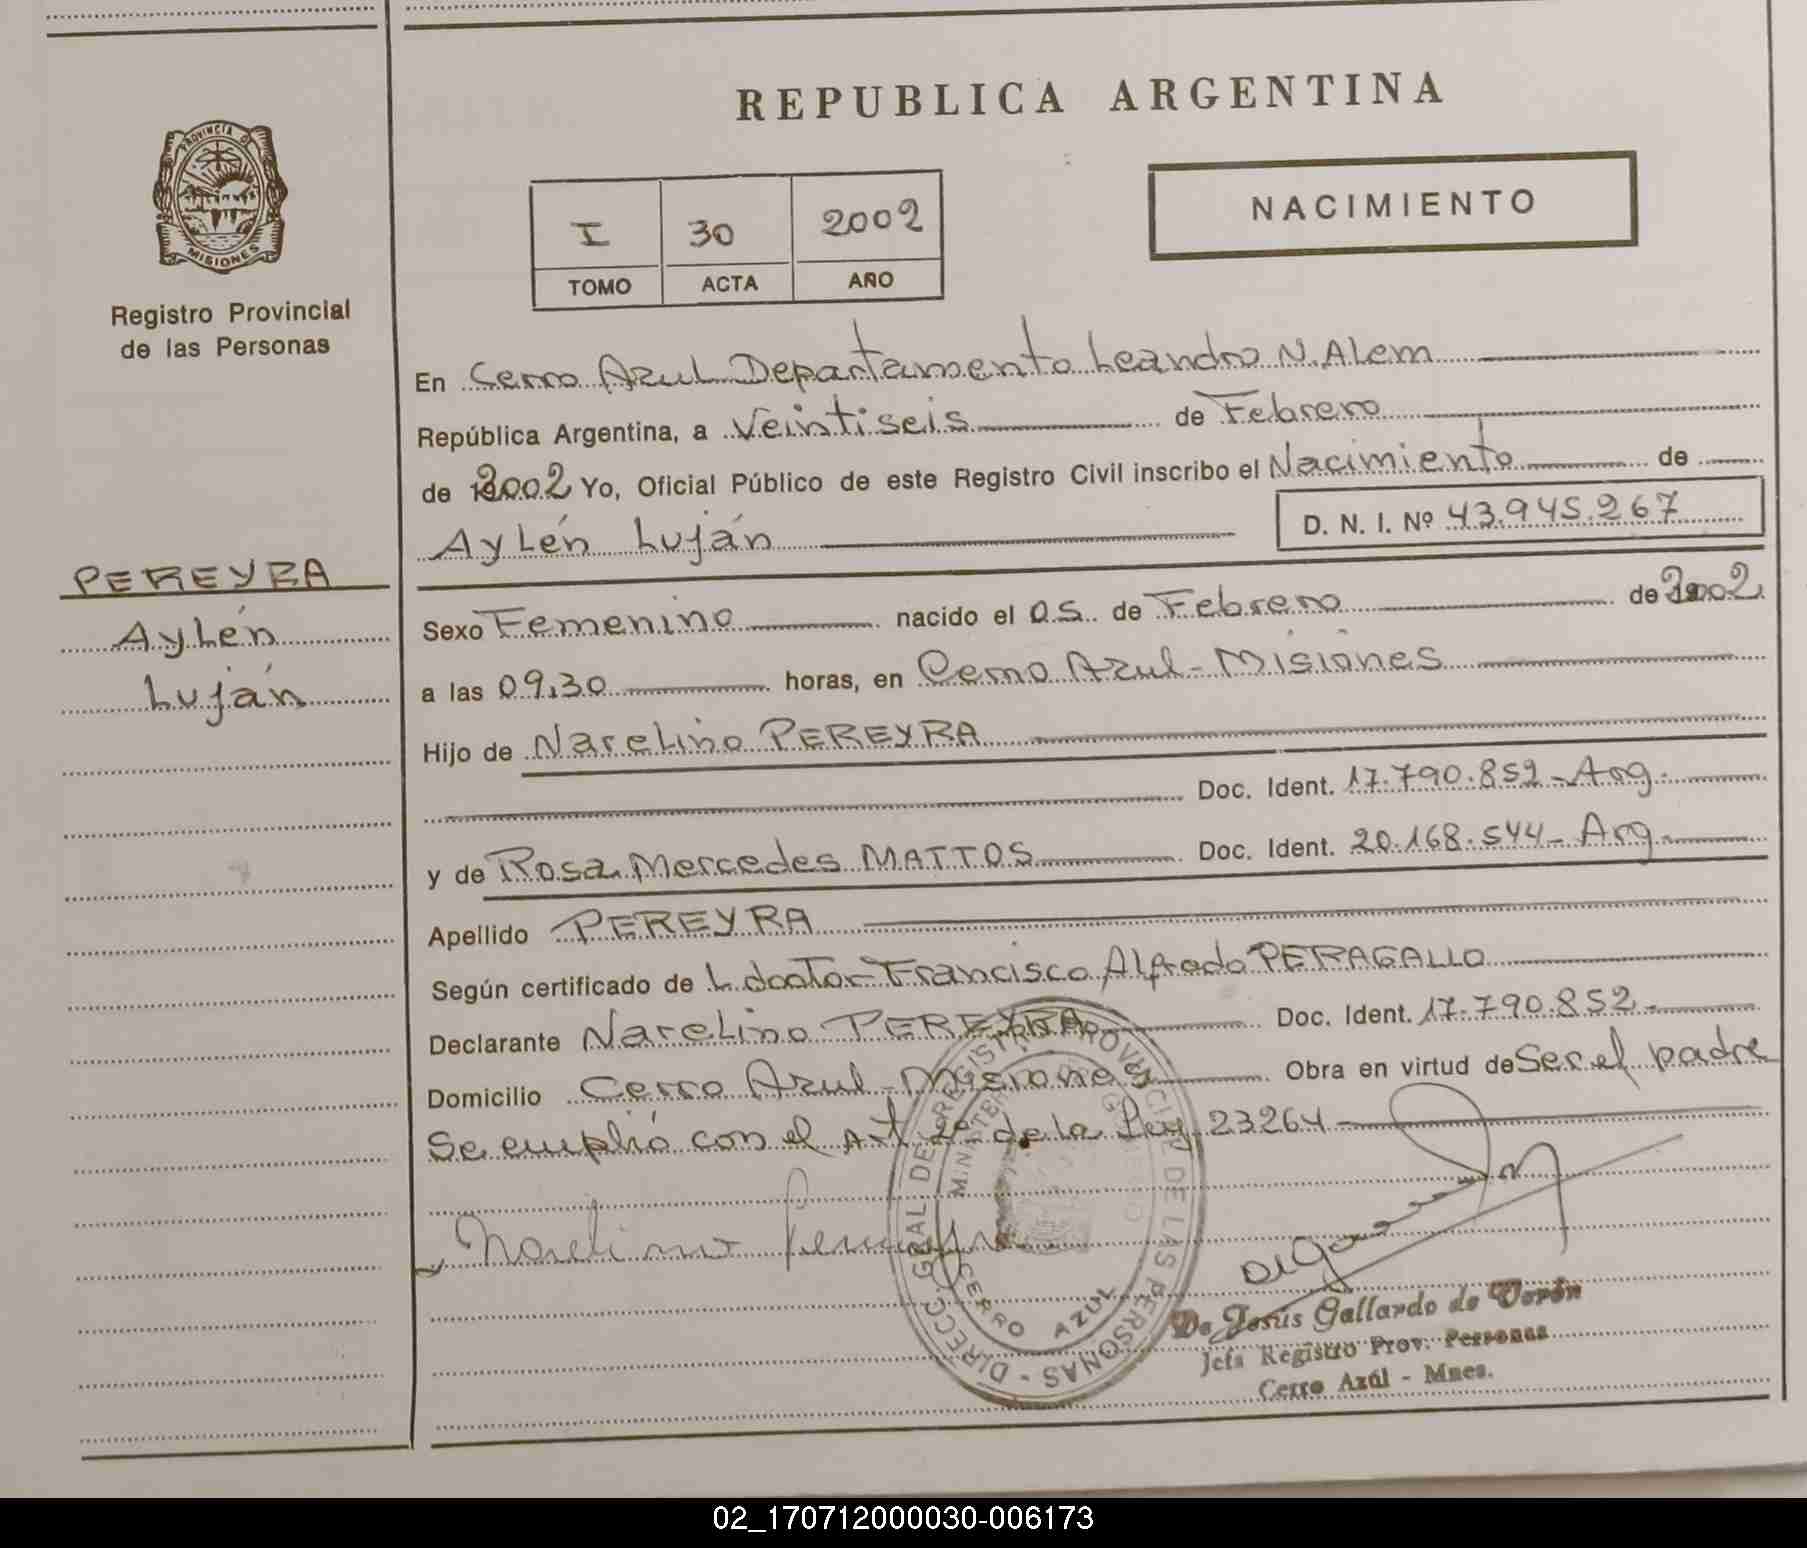 REPUBLICA ARGENTINA
PROVINCIA D
MISIONES
Registro Provincial
de las Personas
I 30 2002
TOMO ACTA AÑO
NACIMIENTO
En Cerro Azul Departamento Leandro N. Alem
República Argentina, a Veintiseis de Febrero
de 2002 Yo, Oficial Público de este Registro Civil inscribo el Nacimiento de
Aylén Luján
D. N. I. Nº 43.945.267
PEREYRA
Aylén
Luján
Sexo Femenino nacido el 05 de Febrero de 2002
a las 09,30 horas, en Cerro Azul - Misiones
Hijo de Narelino PEREYRA
Doc. Ident. 17.790.852 - Arg.
y de Rosa Mercedes MATTOS Doc. Ident. 20.168.544 - Arg.
Apellido PEREYRA
Según certificado de L doctor Francisco Alfredo PERAGALLO
Declarante Narelino PEREYRA Doc. Ident. 17.790.852 -
Domicilio Cerro Azul - Misiones Obra en virtud de Ser el padre
Se cumplió con el Art 2º de la Ley 23264
DIRECC. GRAL DE REGISTRO PROVINCIAL DE LAS PERSONAS
CERRO AZUL
Narelino Pereyra
De Jesús Gallardo de Verón
Jefa Registro Prov. Personas
Cerro Azúl - Mnes.
02_170712000030-006173